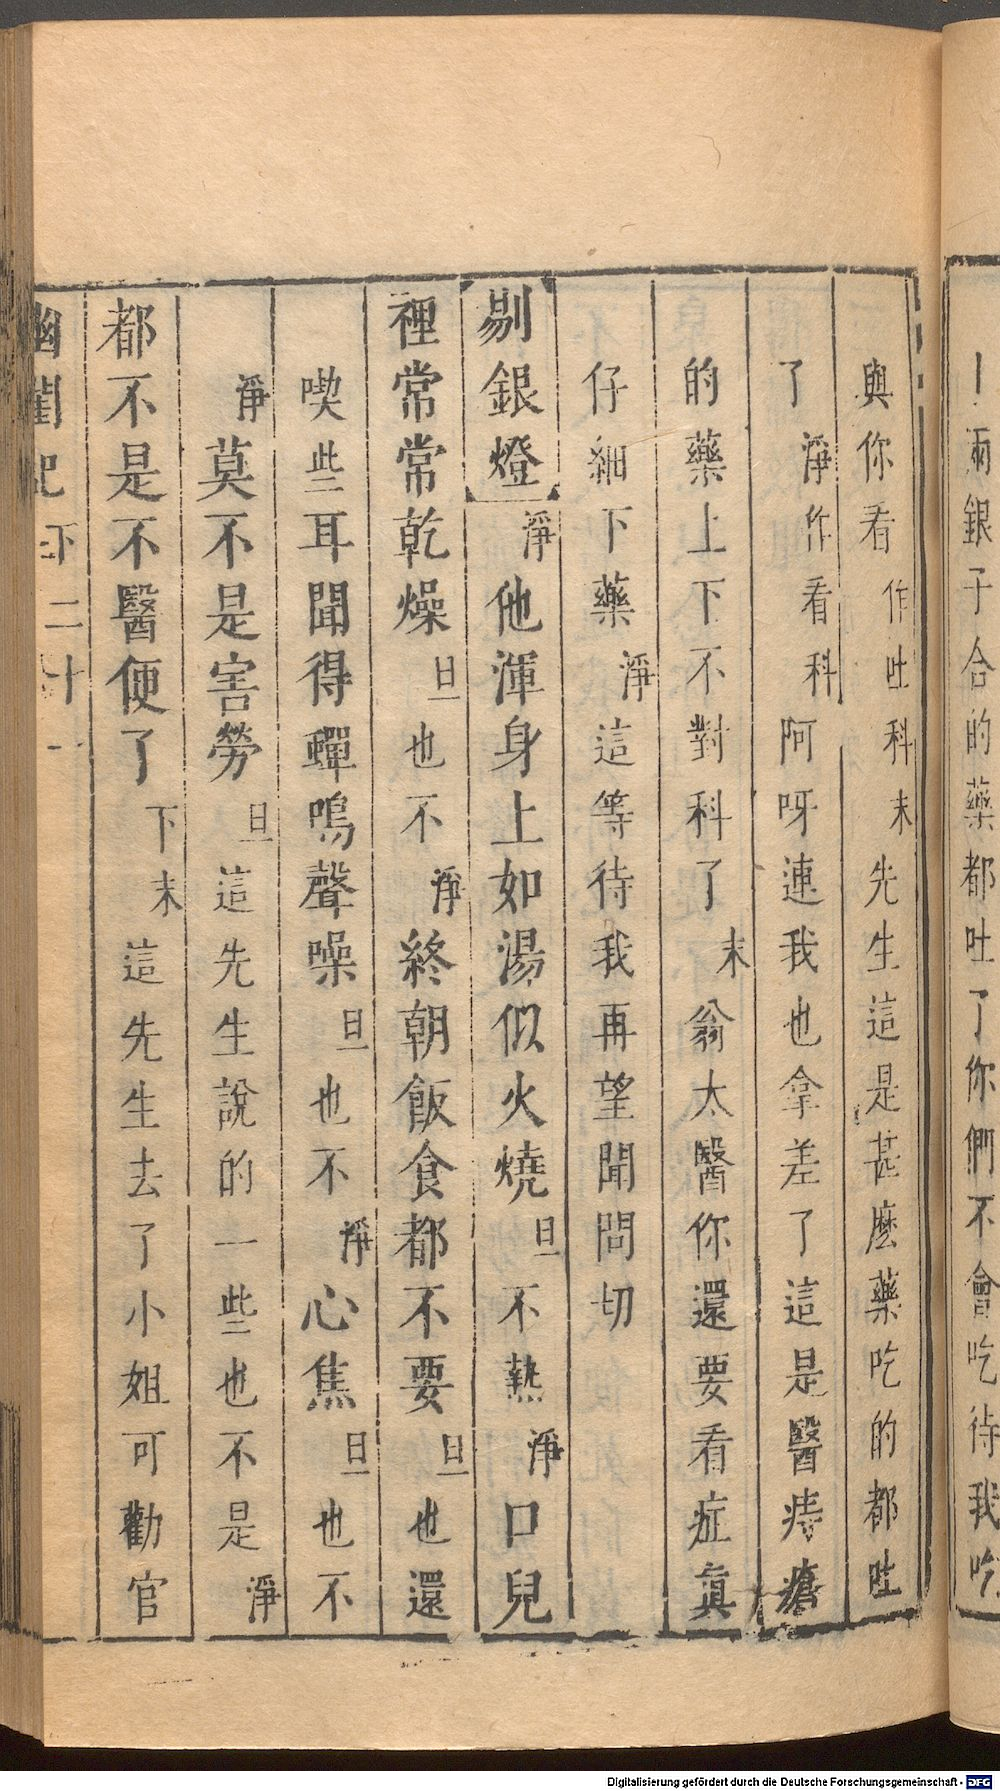 丨兩銀子合的藥都吐了你們不會吃待我吃
與你看作吐科末先生這是甚麽藥吃的都吐
了淨作看科阿呀連我也拿差了這是醫痔瘡
的藥上下不對科了末翁太醫你還要看症眞
仔細下藥淨這等待我再望聞問切
剔銀燈淨他渾身上如湯似火燒旦不熱淨口兒
裡常常乾燥旦也不淨終朝飯食都不要旦也還
喫些耳聞得蟬鳴聲噪旦也不淨心焦旦也不
淨莫不是害勞旦這先生說的一些也不是淨
都不是不醫便了下末這先生去了小姐可勸官
幽閨記下二十一
Digitalisierung gefördert durch die Deutsche Forschungsgemeinschaft - DFG